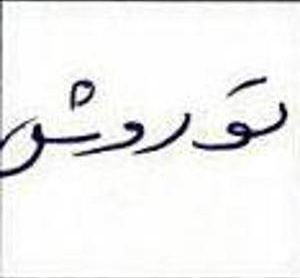 توروش